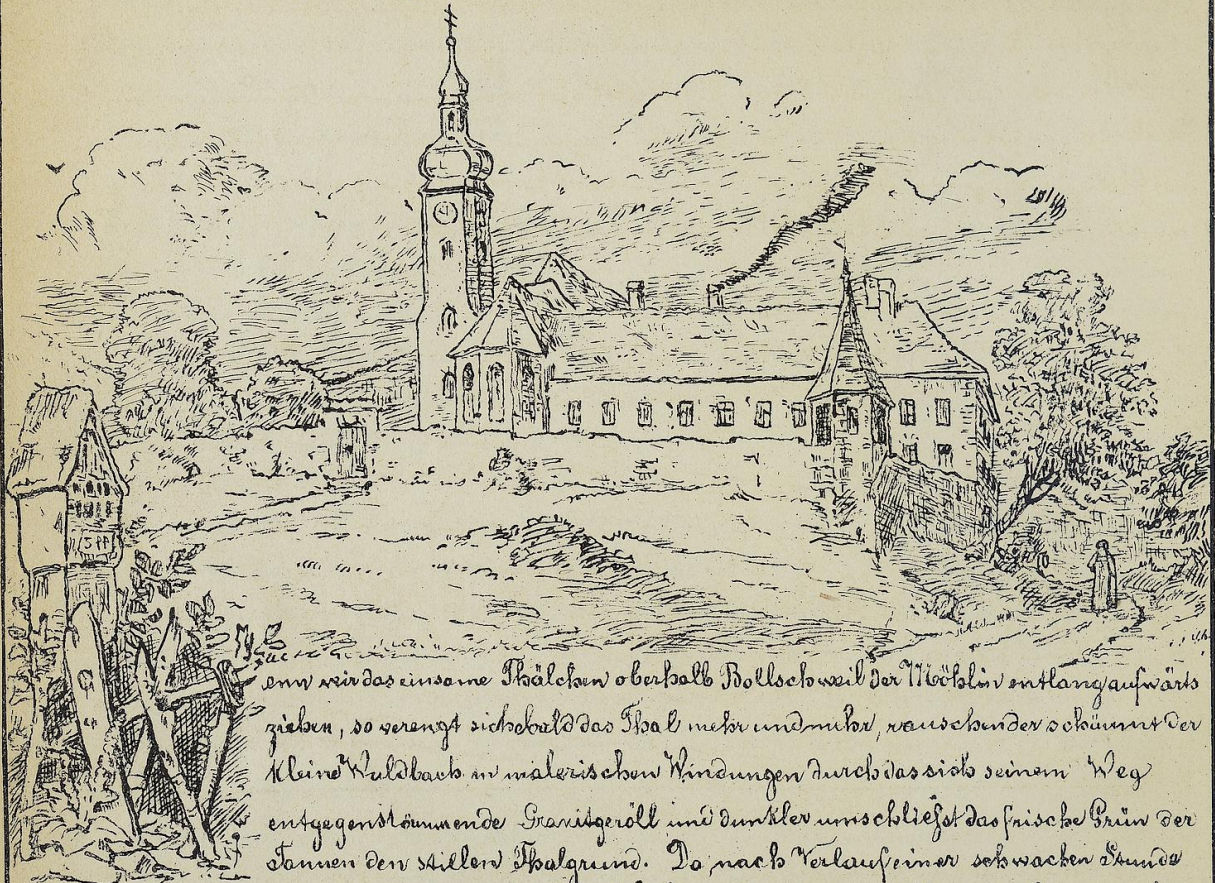 Wenn wir das einsame Thälchen oberhalb Bollschweil der Möhlin entlang aufwärts
ziehen, so verengt sich bald das Thal mehr und mehr, rauschender schäumt der
kleine Waldbach in malerischen Windungen durch das sich seinem Weg
entgegenstemmende Granitgeröll und dunkler umschließt das frische Grün der
Tannen den stillen Thalgrund. Da, nach Verlauf einer schwachen Stunde